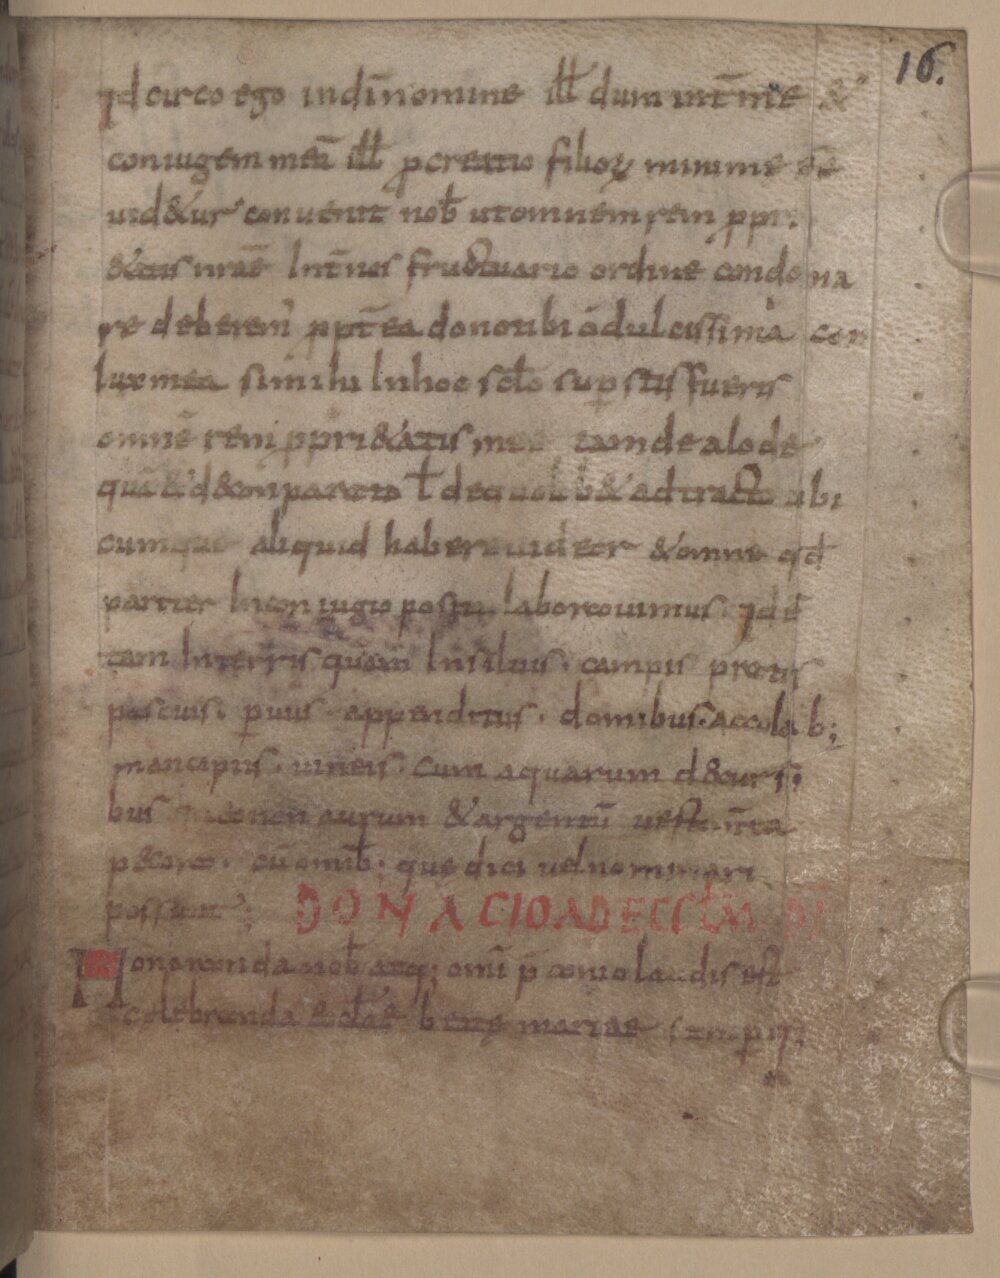 16.
Idcirco ego indīnomine ill̄ dum int̄ me &
coniugem meā ill̄ ꝓcreatio filioꝝ minime eē
uid&ur conuenit nob̄ ut omnem rem ppri
&atis nr̄ae Int̄ nos fructuario ordine condona
re deberem' ꝓpt̄ea dono tibi o dulcissima con
lux mea simihi Inhoc sclō sup̱stis fueris
omnē rem ppri&atis mee tam de alode
quā & d&onparato t̄ dequolib& adtracto ubi
cumque aliquid habere uideor & omne qd̄
pariter Inconiugio positi laboraui mus Idē
tam Interris quam Insiluis. campis pratis
pascuis. ꝑuiis appenditiis. domibus. accolab;
mancipiis. uineis. cum aquarum d&cursi
bus aurum & argentū uestim̄ta
p&cora. cū omīb; que dici uel nominari
possunt;
DONACIO AD ECCLAM DI
Honoranda nob̄ atq; omī p̄conio laudis est
celebranda eccłae beate mariae semp̱